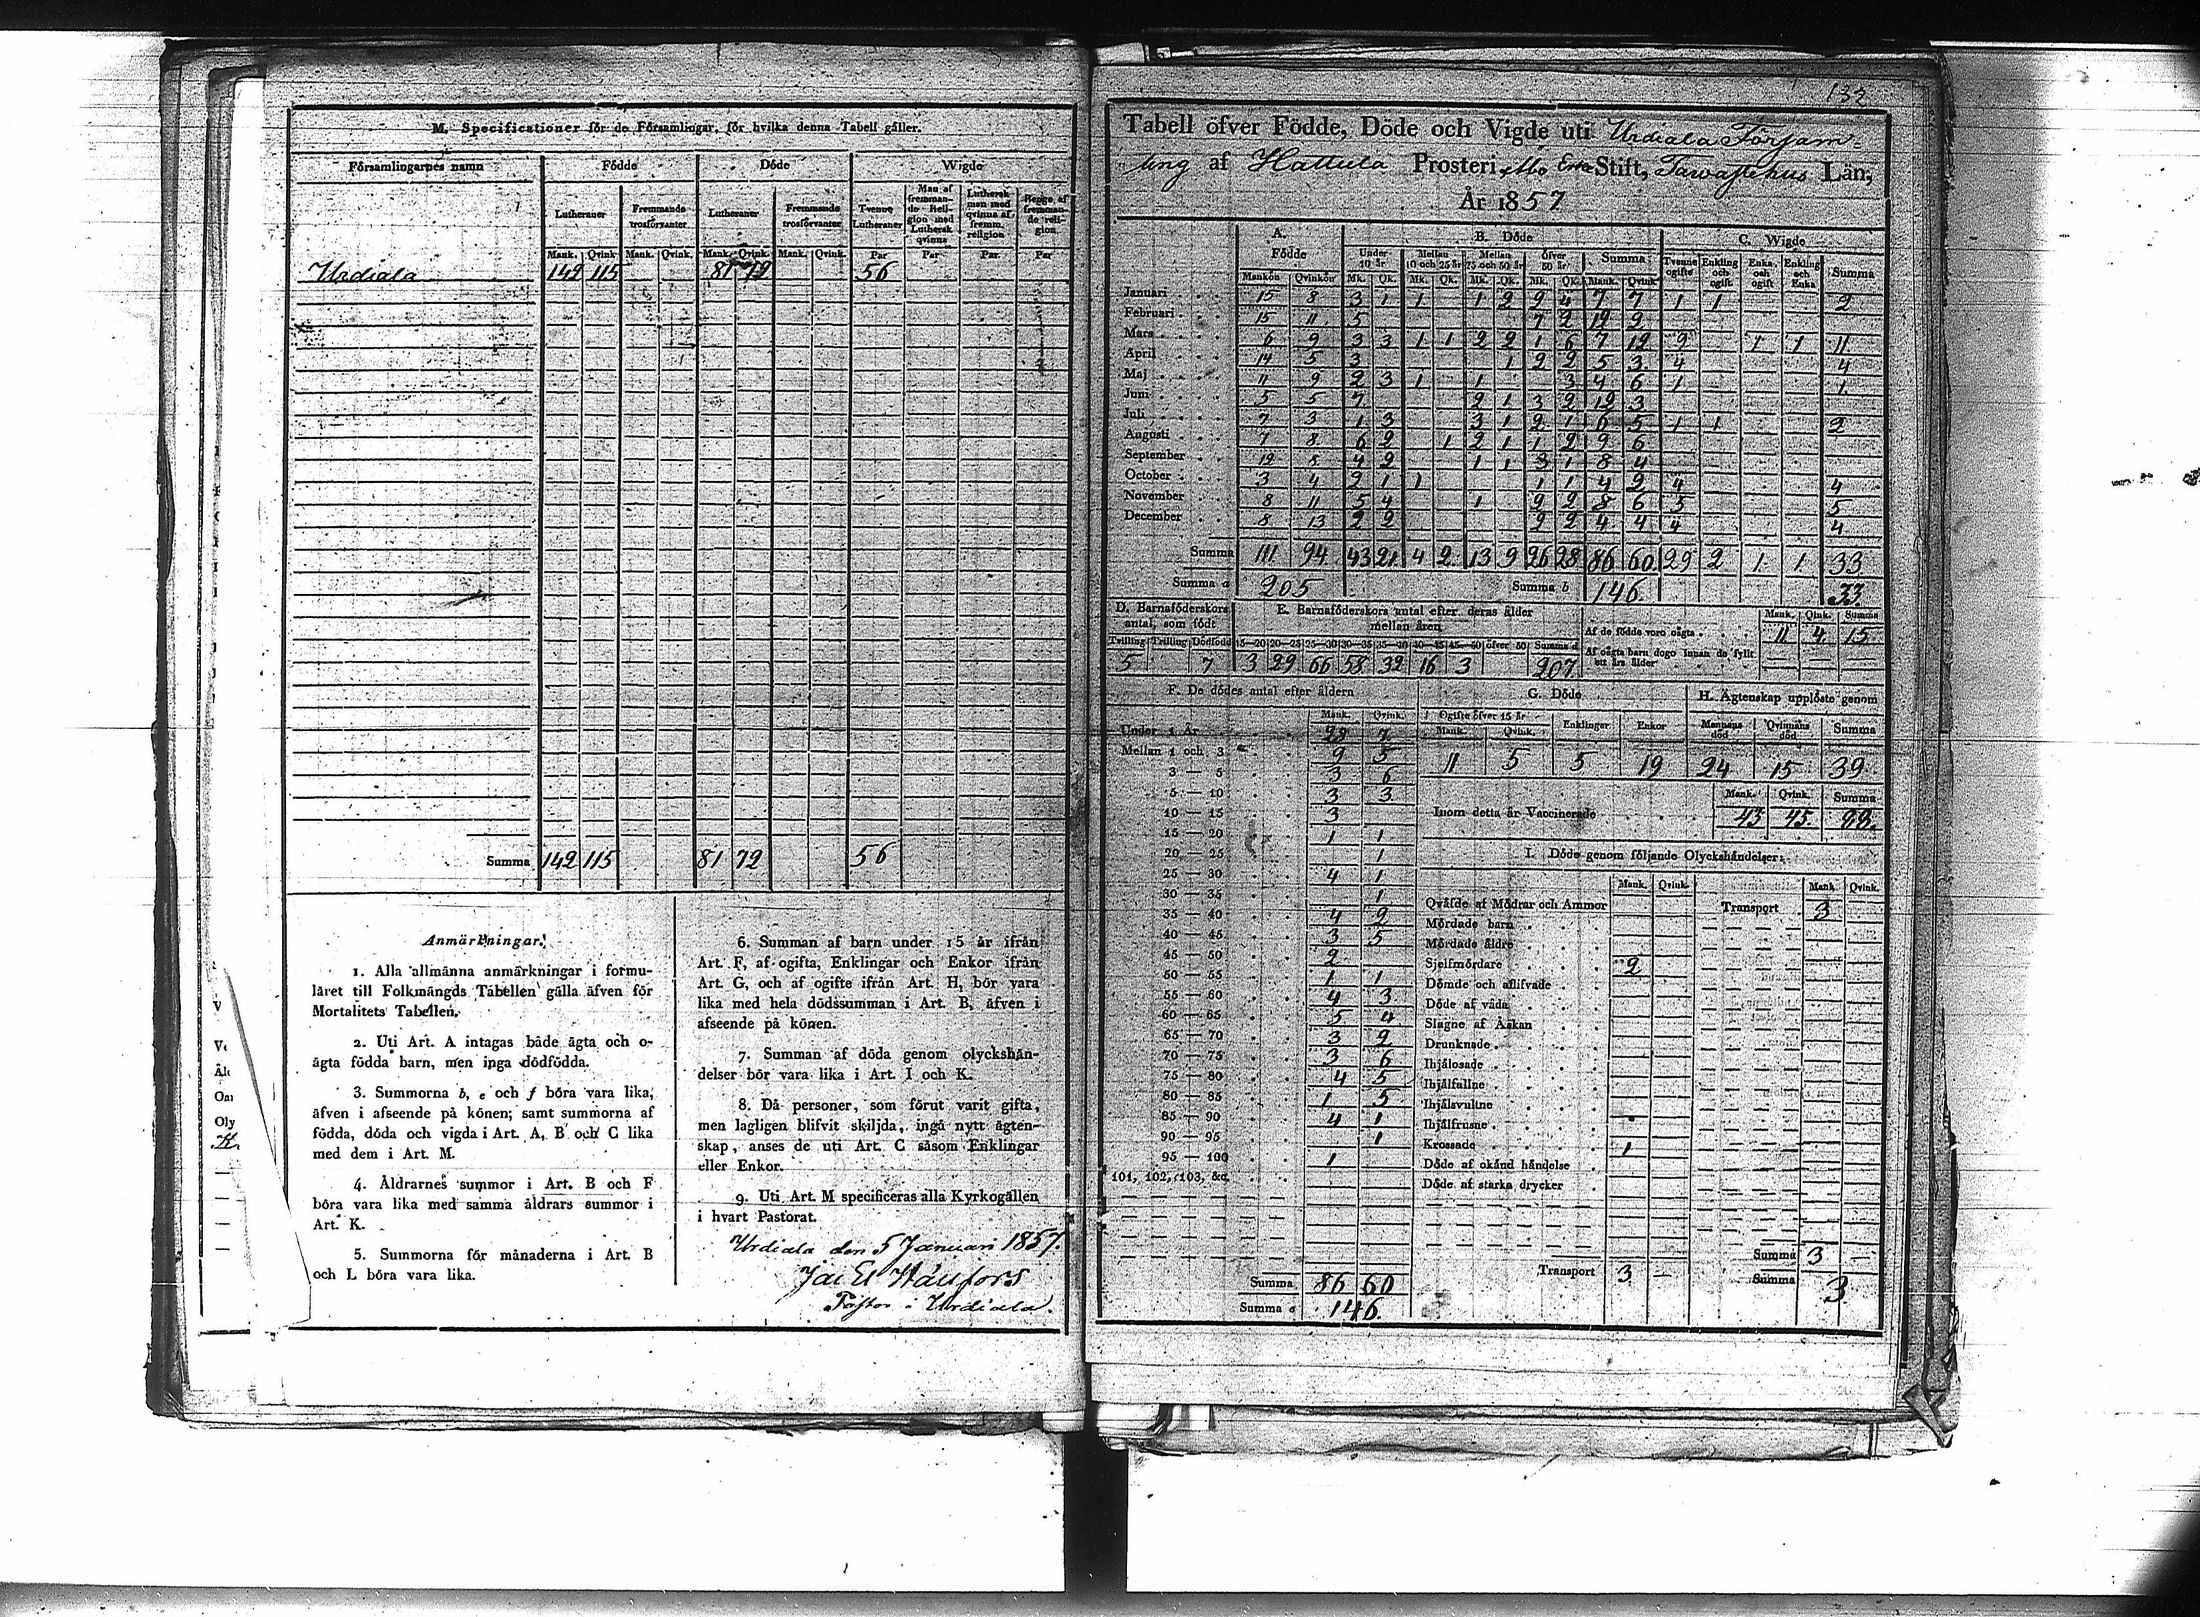 M. Specificationer för de Församlingar, för hvilka denna Tabell gäller.
Församlingarnes namn Födde Döde Wigde
Lutheraner Fremmande trosförvanter Lutheraner Fremmande trosförvanter Tvenne Lutheraner Man af fremmande Religion med Luthersk qvinna Luthersk man med qvinna af fremm. religion Begge af fremmande religion
Mank. Qvink. Mank. Qvink. Mank. Qvink. Mank. Qvink. Par Par Par Par
Urdiala 142 115 81 72 56
Summa 142 115 81 72 56
Anmärkningar.
1. Alla allmänna anmärkningar i formu-
läret till Folkmängds Tabellen gälla äfven för
Mortalitets Tabellen.
2. Uti Art. A intagas både ägta och o-
ägta födda barn, men inga dödfödda.
3. Summorna b, e och f böra vara lika,
äfven i afseende på könen; samt summorna af
födda, döda och vigda i Art. A, B och C lika
med dem i Art. M.
4. Åldrarnes summor i Art. B och F
böra vara lika med samma åldrars summor i
Art. K.
5. Summorna för månaderna i Art. B
och L böra vara lika.
6. Summan af barn under 15 år ifrån
Art. F, af ogifta, Enklingar och Enkor ifrån
Art. G, och af ogifte ifrån Art. H, bör vara
lika med hela dödssumman i Art. B, äfven i
afseende på könen.
7. Summan af döda genom olyckshän-
delser bör vara lika i Art. I och K.
8. Då personer, som förut varit gifta,
men lagligen blifvit skiljda, ingå nytt ägten-
skap, anses de uti Art. C såsom Enklingar
eller Enkor.
9. Uti Art. M specificeras alla Kyrkogällen
i hvart Pastorat.
Urdiala den 5 Januari 1857.
Pastor i Urdiala.
132
Tabell öfver Födde, Döde och Vigde uti Urdiala Försam=
ling af Hattula Prosteri, Åbo Erke Stift, Tawastehus Län,
År 1857
A. Födde B. Döde C. Wigde
Under 10 år Mellan 10 och 25 år Mellan 25 och 50 år öfver 50 år Summa Tvenne ogifte Enkling och ogift Enka och ogift Enkling och Enka Summa
Mankön Qvinkön Mk. Qk. Mk. Qk. Mk. Qk. Mk. Qk. Mank. Qvink.
Januari 15 8 3 1 1 1 2 2 4 7 7 1 1 2
Februari 15 11 5 7 2 12 2
Mars 6 9 3 3 1 1 2 2 1 6 7 12 9 1 1 11
April 14 5 3 1 2 2 5 3 4 4
Maj 11 9 2 3 1 1 3 4 6 1 1
Juni 5 5 7 2 1 3 2 12 3
Juli 7 3 1 3 3 1 2 1 6 5 1 1 2
Augusti 7 8 6 2 1 2 1 1 2 9 6
September 12 8 4 2 1 1 3 1 8 4
October 3 4 2 1 1 1 1 4 2 4 4
November 8 11 5 4 1 2 2 8 6 5 5
December 8 13 2 2 2 2 4 4 4 4
Summa 111 94 43 21 4 2 13 9 26 28 86 60 29 2 1 1 33
Summa a 205 Summa b 146 33
D. Barnaföderskors antal, som födt
Tvilling Trilling Dödfödd
5 7
E. Barnaföderskors antal efter deras ålder mellan åren
15—20 20—25 25—30 30—35 35—40 40—45 45—50 öfver 50 Summa d
3 29 66 58 32 16 3 207
Mank. Qink. Summa
Af de födde voro oägta 11 4 15
Af oägta barn dogo innan de fyllt ett års ålder
F. De dödes antal efter åldern
Mank. Qvink.
Under 1 År 28 7
Mellan 1 och 3 9 5
3 — 5 3 6
5 — 10 3 3
10 — 15 3
15 — 20 1 1
20 — 25 1
25 — 30 4 1
30 — 35 1
35 — 40 4 2
40 — 45 3 5
45 — 50 2
50 — 55 1 1
55 — 60 4 3
60 — 65 5 4
65 — 70 3 2
70 — 75 3 6
75 — 80 4 5
80 — 85 1 5
85 — 90 4 1
90 — 95 1
95 — 100 1
101, 102, 103, &c.
Summa 86 60
Summa e 146.
G. Döde
Ogifte öfver 15 år Enklingar Enkor
Mank. Qvink.
11 5 5 19
H. Ägtenskap upplöste genom
Mannens död Qvinnans död Summa
24 15 39
Mank. Qvink. Summa
Inom detta år Vaccinerade 43 45 88.
I. Döde genom följande Olyckshändelser:
Mank. Qvink. Mank. Qvink.
Qväfde af Mödrar och Ammor Transport 3
Mördade barn
Mördade äldre
Sjelfmördare 2
Dömde och aflifvade
Döde af våda
Slagne af Åskan
Drunknade
Ihjälosade
Ihjälfallne
Ihjälsvultne
Ihjälfrusne
Krossade 1
Döde af okänd händelse
Döde af starka drycker
Transport 3 —
Summa 3 —
Summa 3.